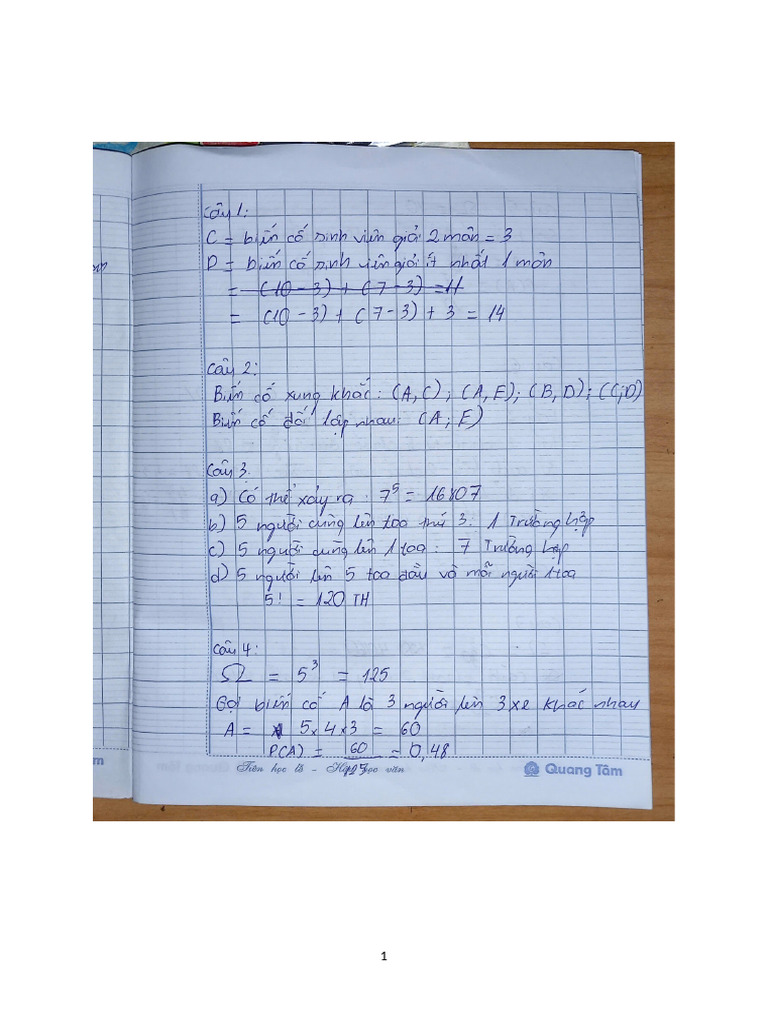 Câu 1:
C = biến cố sinh viên giỏi 2 môn = 3
D = biến cố sinh viên giỏi ít nhất 1 môn
= (10 - 3) + (7 - 3) = 11
= (10 - 3) + (7 - 3) + 3 = 14
Câu 2:
Biến cố xung khắc: (A,C); (A,E); (B,D); (C;D)
Biến cố đối lập nhau: (A; E)
Câu 3.
a) Có thể xảy ra : 7^5 = 16807
b) 5 người cùng lên toa thứ 3: 1 Trường hợp
c) 5 người cùng lên 1 toa : 7 Trường hợp
d) 5 người lên 5 toa đầu và mỗi người 1 toa
5! = 120 TH
Câu 4:
Ω = 5^3 = 125
Gọi biến cố A là 3 người lên 3 xe khác nhau
A = 5 x 4 x 3 = 60
P(A) = 60/125 = 0,48
Tiên học lễ - Hậu học văn Quang Tâm
1